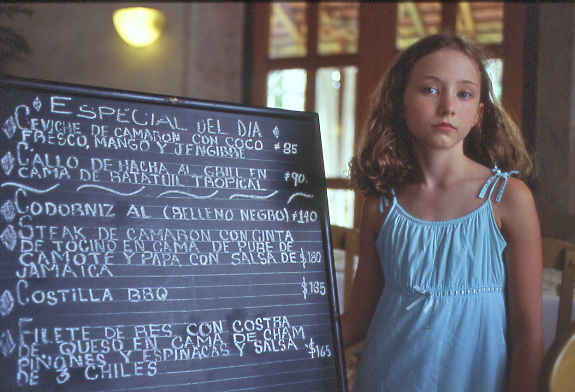 ESPECIAL DEL DIA
CEVICHE DE CAMARON CON COCO
FRESCO, MANGO Y JENGIBRE $85
CALLO DE HACHA AL GRILL EN
CAMA DE RATATUIL TROPICAL $90.
CODORNIZ AL (RELLENO NEGRO) $140
STEAK DE CAMARON CON CINTA
DE TOCINO EN CAMA DE PURE DE
CAMOTE Y PAPA CON SALSA DE $180
JAMAICA
COSTILLA BBQ $185
FILETE DE RES CON COSTRA
DE QUESO EN CAMA DE CHAM
PIÑONES Y ESPINACAS Y SALSA $165
DE 3 CHILES